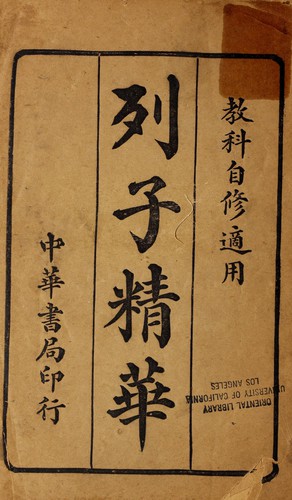 教科自修適用
列子精華
中華書局印行
ORIENTAL LIBRARY
UNIVERSITY OF CALIFORNIA
LOS ANGELES